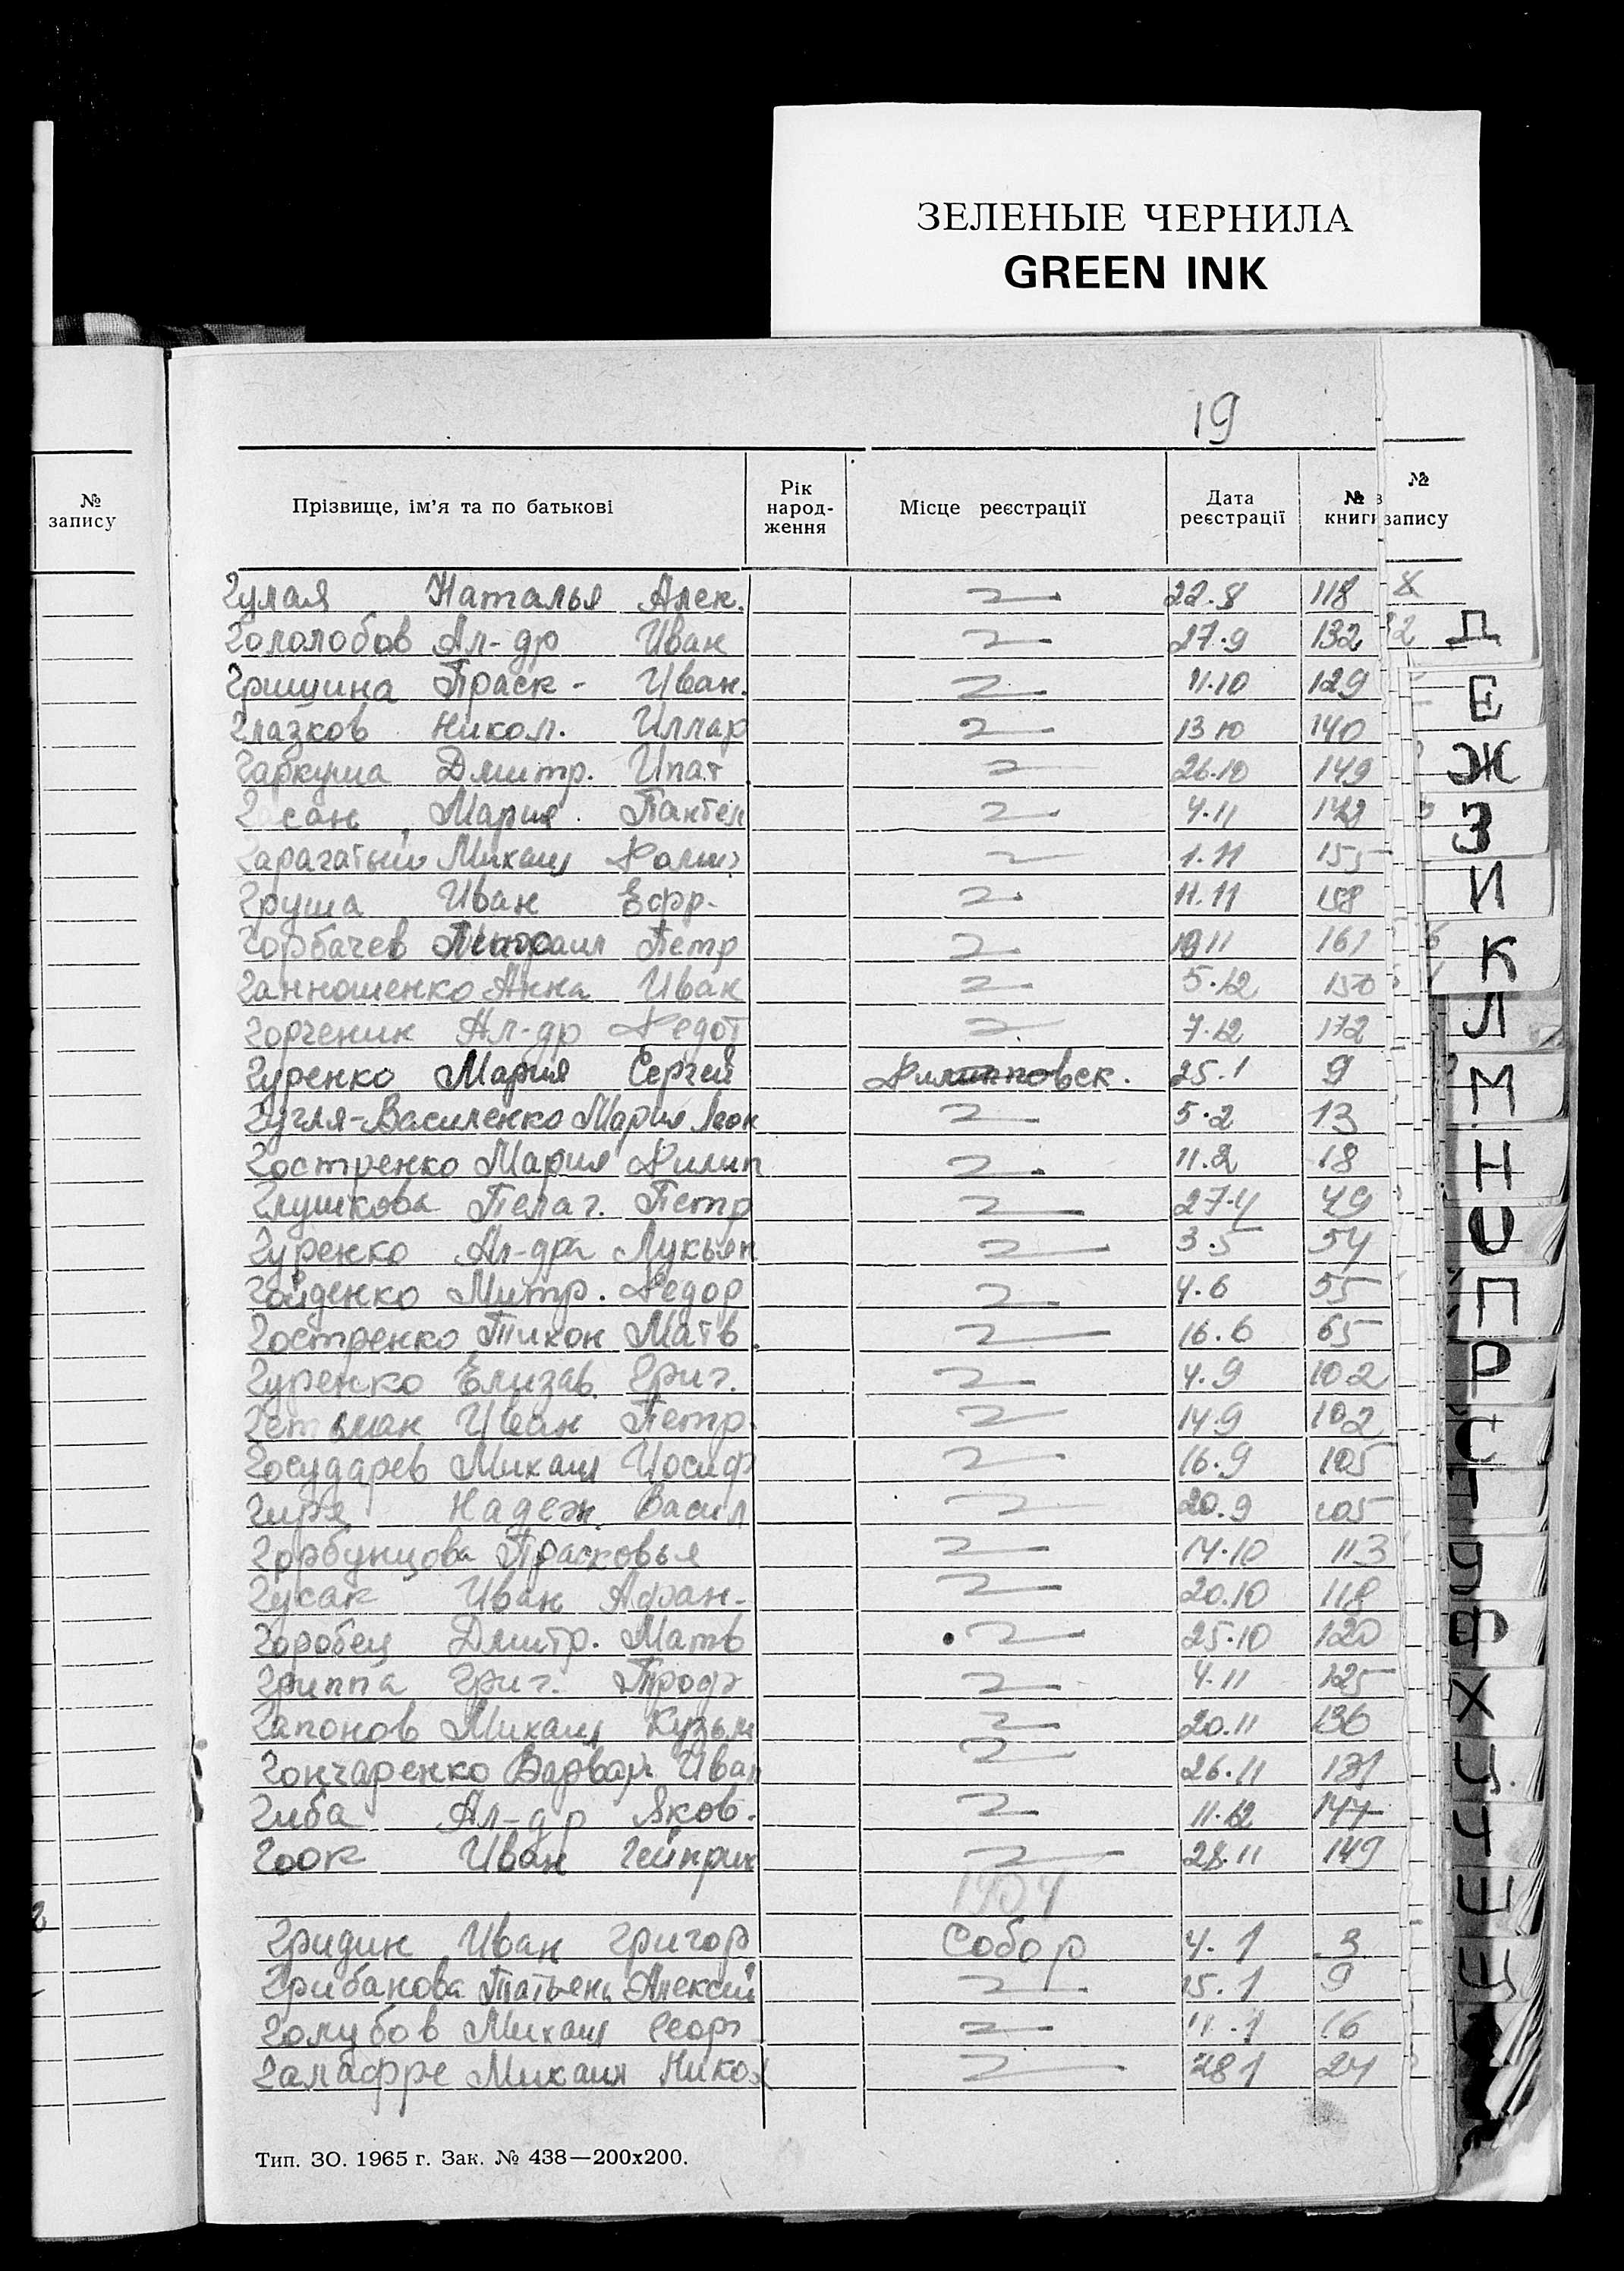 ЗЕЛЕНЫЕ ЧЕРНИЛА
GREEN INK
19
№ запису
Прізвище, ім'я та по батькові Рік народ-ження Місце реєстрації Дата реєстрації № книги № запису
Гулая Наталья Алек. 22.8 118
Гололобов Ал-др Иван 27.9 132
Гришина Праск- Иван. 11.10 129
Глазков Никол. Иллар 13 10 140
Гаркуша Дмитр. Ипат 26.10 149
сан Мария Пантел 4.11
Гарагатый Михаил 1.11 155
Груша Иван Ефр. 11.11 158
Горбачев Петр 161
Ганношенко Анна Иван 5.12 150
Горченик Ал-др Федот 7.12 172
Гуренко Мария Сергей Филипповск. 25.1 9
Гугля-Василенко Мария Леон 5.2 13
Гостренко Мария Филип 11.2 18
Глушкова Пелаг. Петр 27.4 49
Гуренко Ал-дра Лукьян 3.5 54
Гайденко Митр. Федор 4.6 55
Гостренко Тихон Матв. 16.6 65
Гуренко Елизав. Григ. 4.9 102
Гетьман Иван Петр. 14.9 102
Государев Михаил Иосиф 16.9 105
Гиря Надеж. Васил 20.9 105
Горбунцова Прасковья 14.10 113
Гусак Иван Афан- 20.10 118
Горобец Дмитр. Матв 25.10 120
Гриппа Григ. Троф 4.11 125
Гапонов Михаил Кузьм 20.11 136
Гончаренко Варвар Иван 26.11 131
Гиба Ал-др Яков. 11.12 147
Гоок Иван Гейнрих 28.11 149
1904
Гридин Иван Григор Собор 4.1 3
Грибанова Татьяна Алексей 15.1 9
Голубов Михаил Георг 16
Галафре Михаил Никол 28 1 24
Тип. ЗО. 1965 г. Зак. № 438—200х200.
Д
Е
Ж
З
И
К
Л
М
Н
О
П
Р
С
Т
У
Ф
Х
Ц
Ч
Ш
Щ